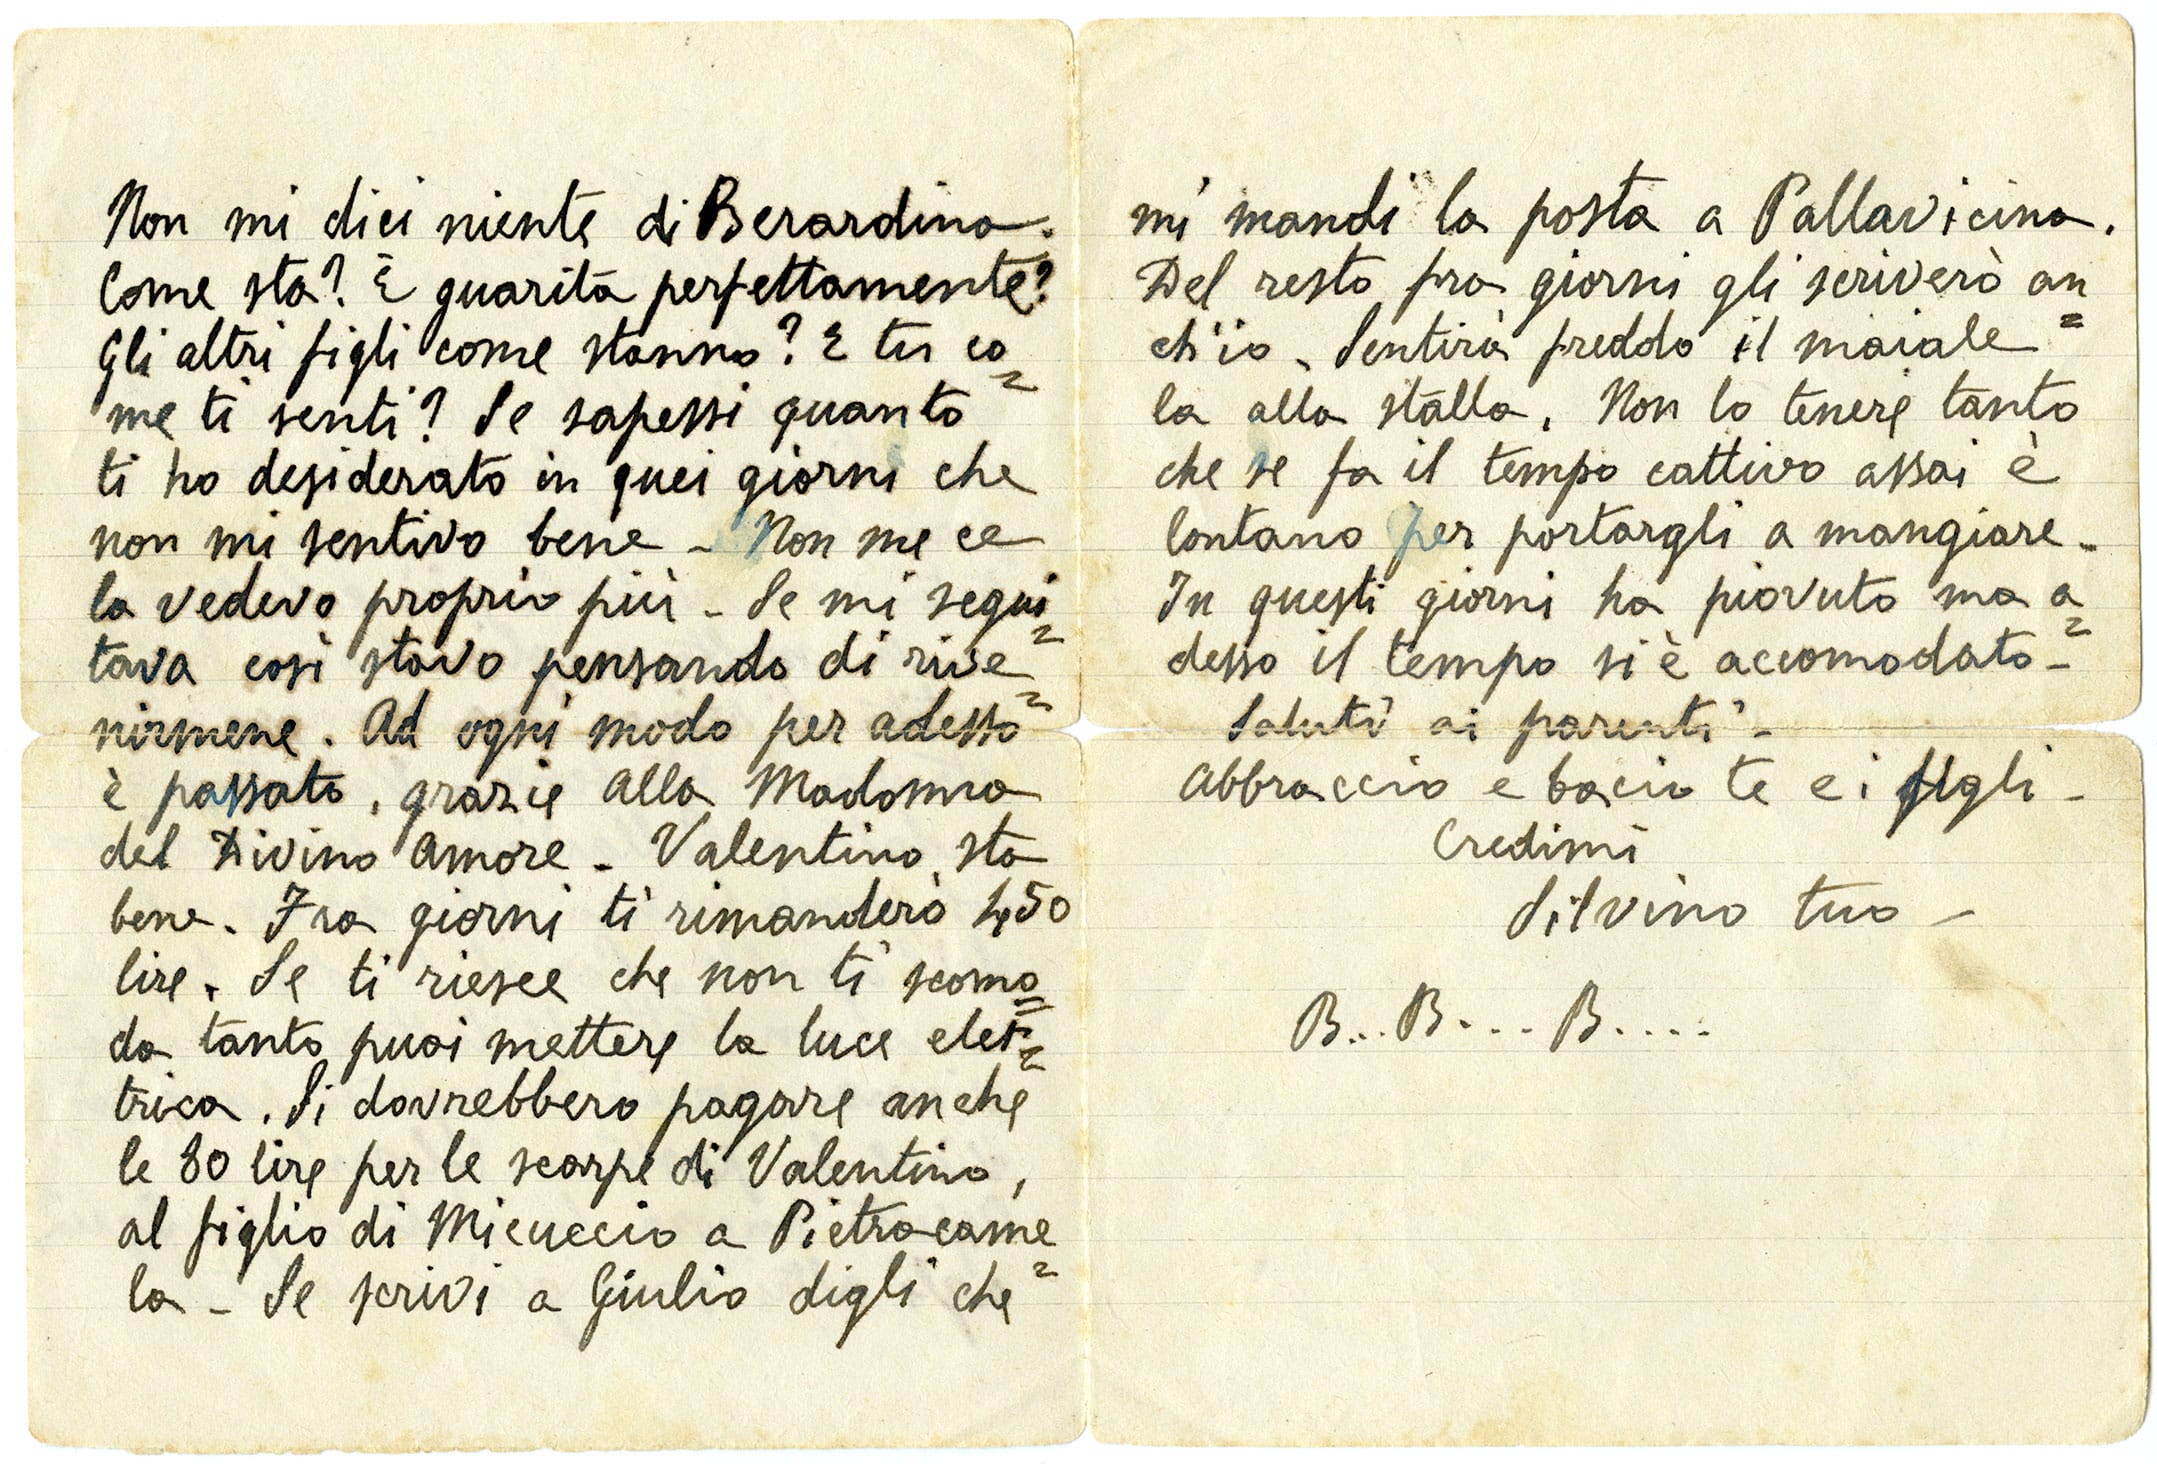 Non mi dici niente di Berardina.
Come sta? È guarita perfettamente?
Gli altri figli come stanno? E tu co=
me ti senti? Se sapessi quanto
ti ho desiderato in quei giorni che
non mi sentivo bene - Non me ce
la vedevo proprio più - Se mi segui=
tava così stavo pensando di rive=
nirmene. Ad ogni modo per adesso
è passato, grazie alla Madonna
del Divino Amore - Valentino sta
bene. Fra giorni ti rimanderò 450
lire. Se ti riesce che non ti scomo=
da tanto puoi mettere la luce elet=
trica. Si dovrebbero pagare anche
le 80 lire per le scarpe di Valentino,
al figlio di Micuccio a Pietracame=
la - Se scrivi a Giulio digli che
mi mandi la posta a Pallavicina.
Del resto fra giorni gli scriverò an=
ch'io - Sentirà freddo il maiale
la alla stalla. Non lo tenere tanto
che se fa il tempo cattivo assai è
lontano per portargli a mangiare -
In questi giorni ha piovuto ma a=
desso il tempo si è accomodato -
Saluti ai parenti -
Abbraccio e bacio te e i figli -
Credimi
Silvino tuo -
B... B.... B.....